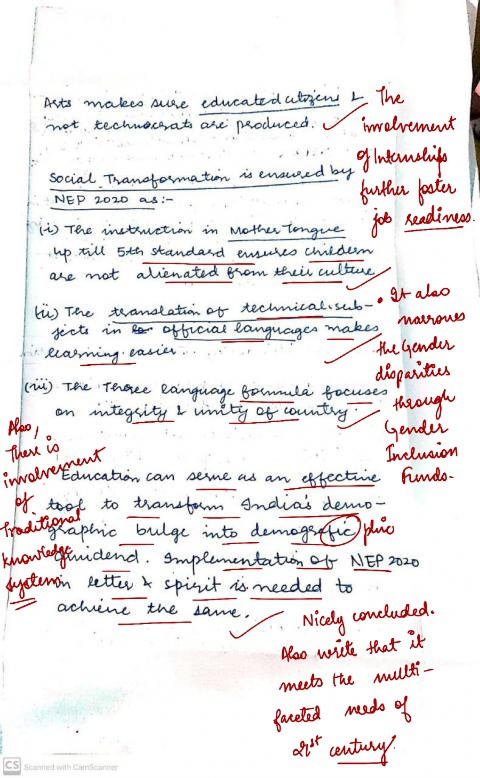 Arts makes sure educated citizens &
not, technocrats are produced.
The
involvement
of Internships
further foster
job readiness.
Social Transformation is ensured by
NEP 2020 as:-
(i) The instruction in Mother Tongue
up till 5th standard ensures children
are not alienated from their culture
(ii) The translation of technical sub-
jects in official languages makes
learning easier.
• It also
narrows
the Gender
disparities
through
Gender
Inclusion
Funds.
(iii) The Three language formula focuses
on integrity & unity of country.
Also,
There is
involvement
of
Traditional
knowledge
system
Education can serve as an effective
tool to transform India's demo-
graphic bulge into demografic phic
dividend. Implementation of NEP 2020
in letter & spirit is needed to
achieve the same.
Nicely concluded.
Also write that it
meets the multi-
faceted needs of
21st century.
CS Scanned with CamScanner